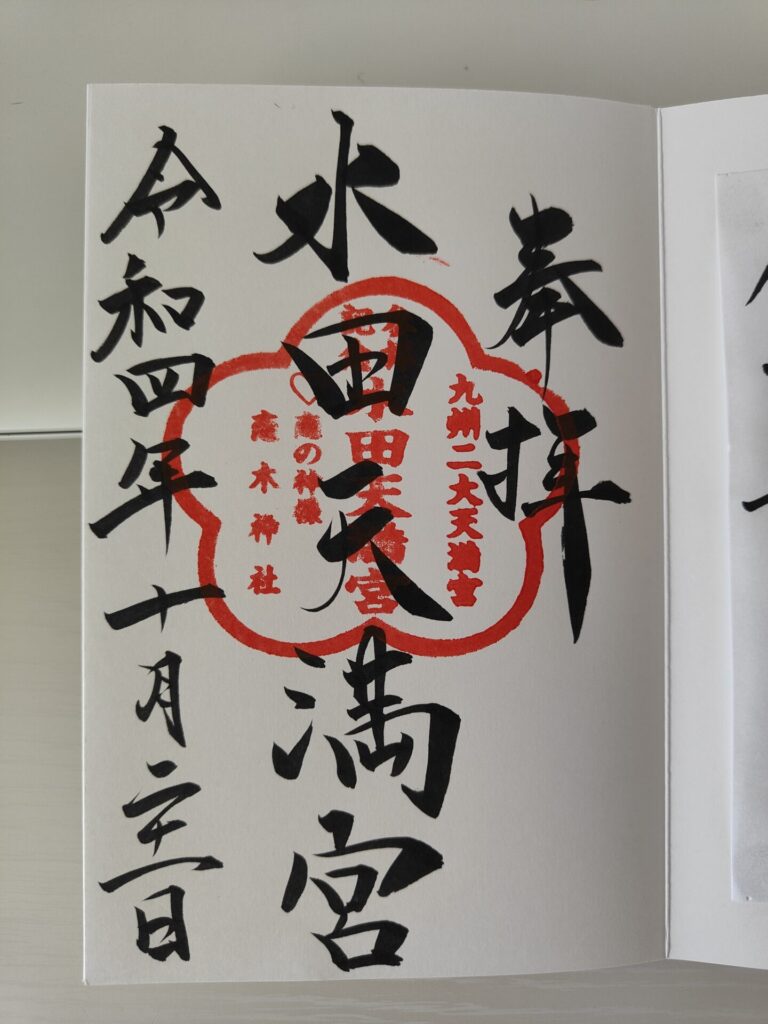 奉拝
水田天満宮
令和四年十月二十二日
九州二大天満宮
水田天満宮
恋の神様
恋木神社